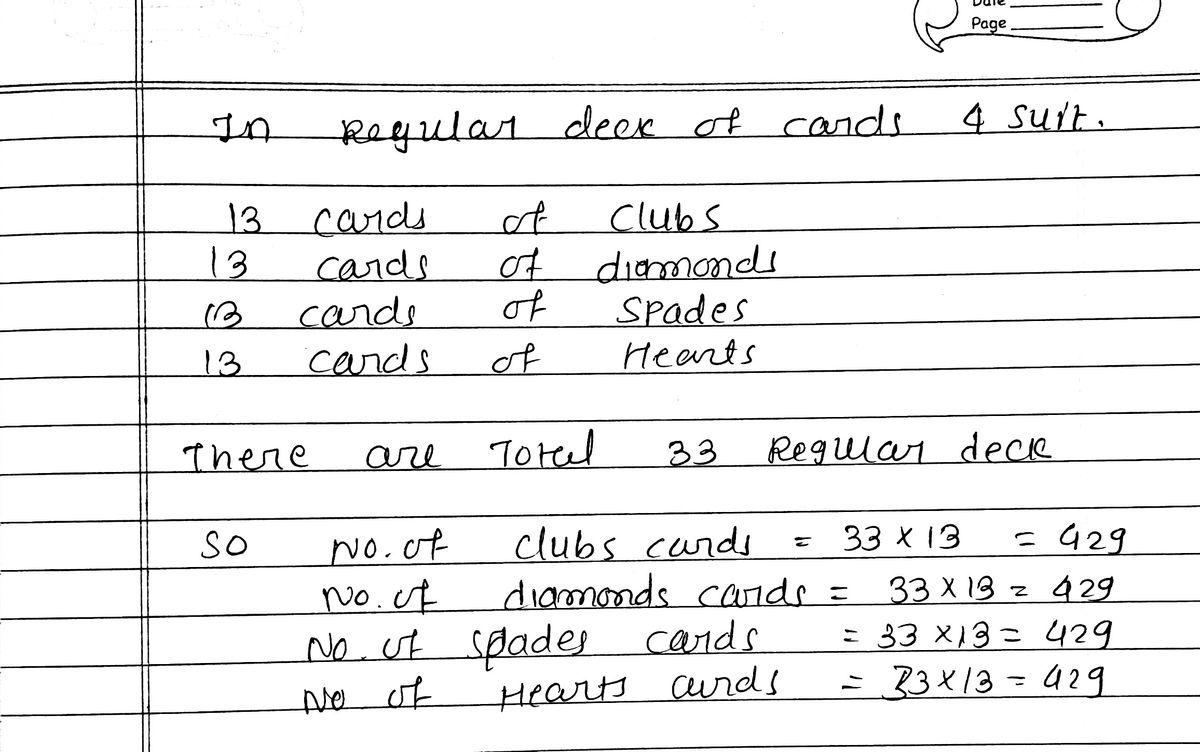 Date
Page
In Regular deck of cards 4 suit.
13 cards of Clubs
13 cards of diamonds
13 cards of Spades
13 cards of Hearts
There are Total 33 Regular deck
SO No. of clubs cards = 33 x 13 = 429
No. of diamonds cards = 33 x 13 = 429
No. of spades cards = 33 x 13 = 429
No of Hearts cards = 33 x 13 = 429